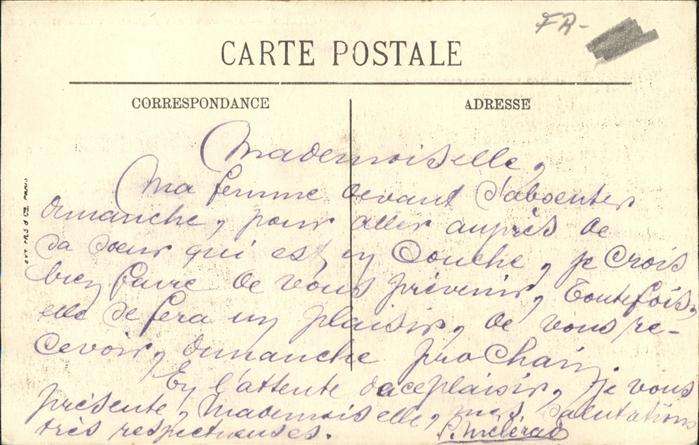 FR-
CARTE POSTALE
CORRESPONDANCE
ADRESSE
Mademoiselle,
Ma femme devant s'absenter
dimanche, pour aller auprès de
sa sœur qui est en couche, je crois
bien faire de vous prévenir, toutefois,
elle se fera un plaisir, de vous re-
cevoir, dimanche prochain.
En l'attente de ce plaisir, je vous
présente, Mademoiselle, mes salutations
très respectueuses.